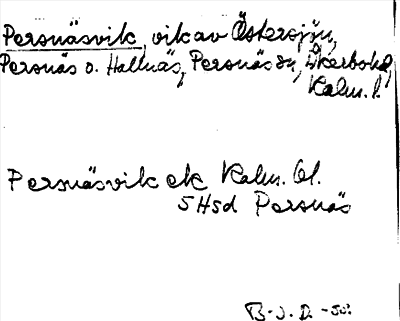 Persnäsvik, vik av Östersjön,
Persnäs o. Hallnäs, Persnäs sn, Åkerbohd,
Kalm. l.
Persnäsvik ek Kalm. bl.
5 Hsd Persnäs
B-J. D. -50.